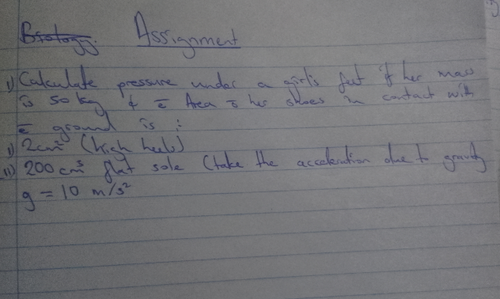 Biology. Assignment
1) Calculate pressure under a girl's feet if her mass
is 50kg & ē Area ē her shoes in contact with
ē ground is :
i) 2cm² (high heels)
ii) 200 cm³ flat sole (take the acceleration due to gravity
g = 10 m/s²